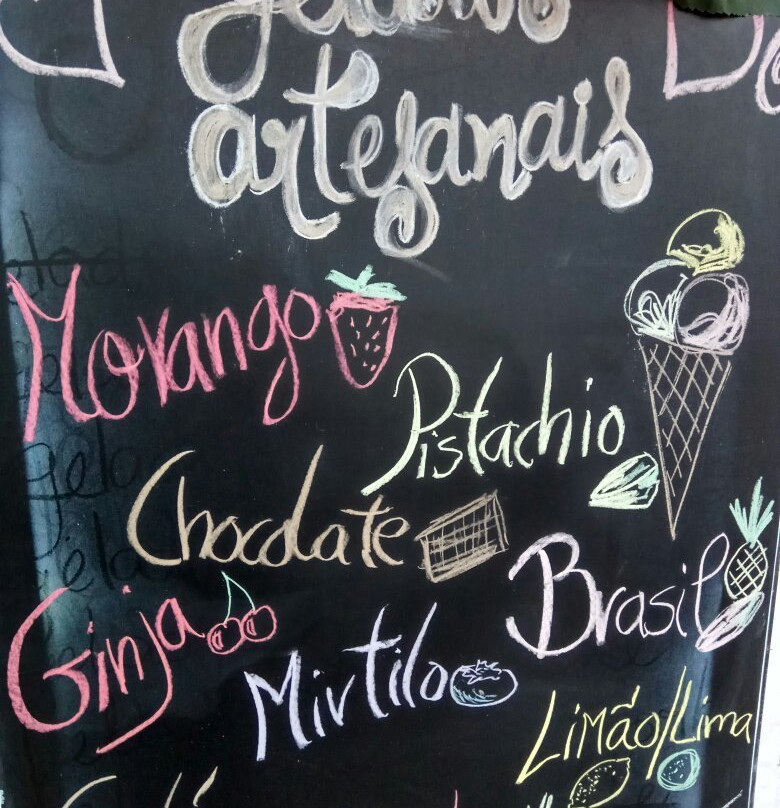 gelados
artesanais
Morango
Pistachio
Chocolate
Brasil
Ginja
Mirtilo
Limão/Lima